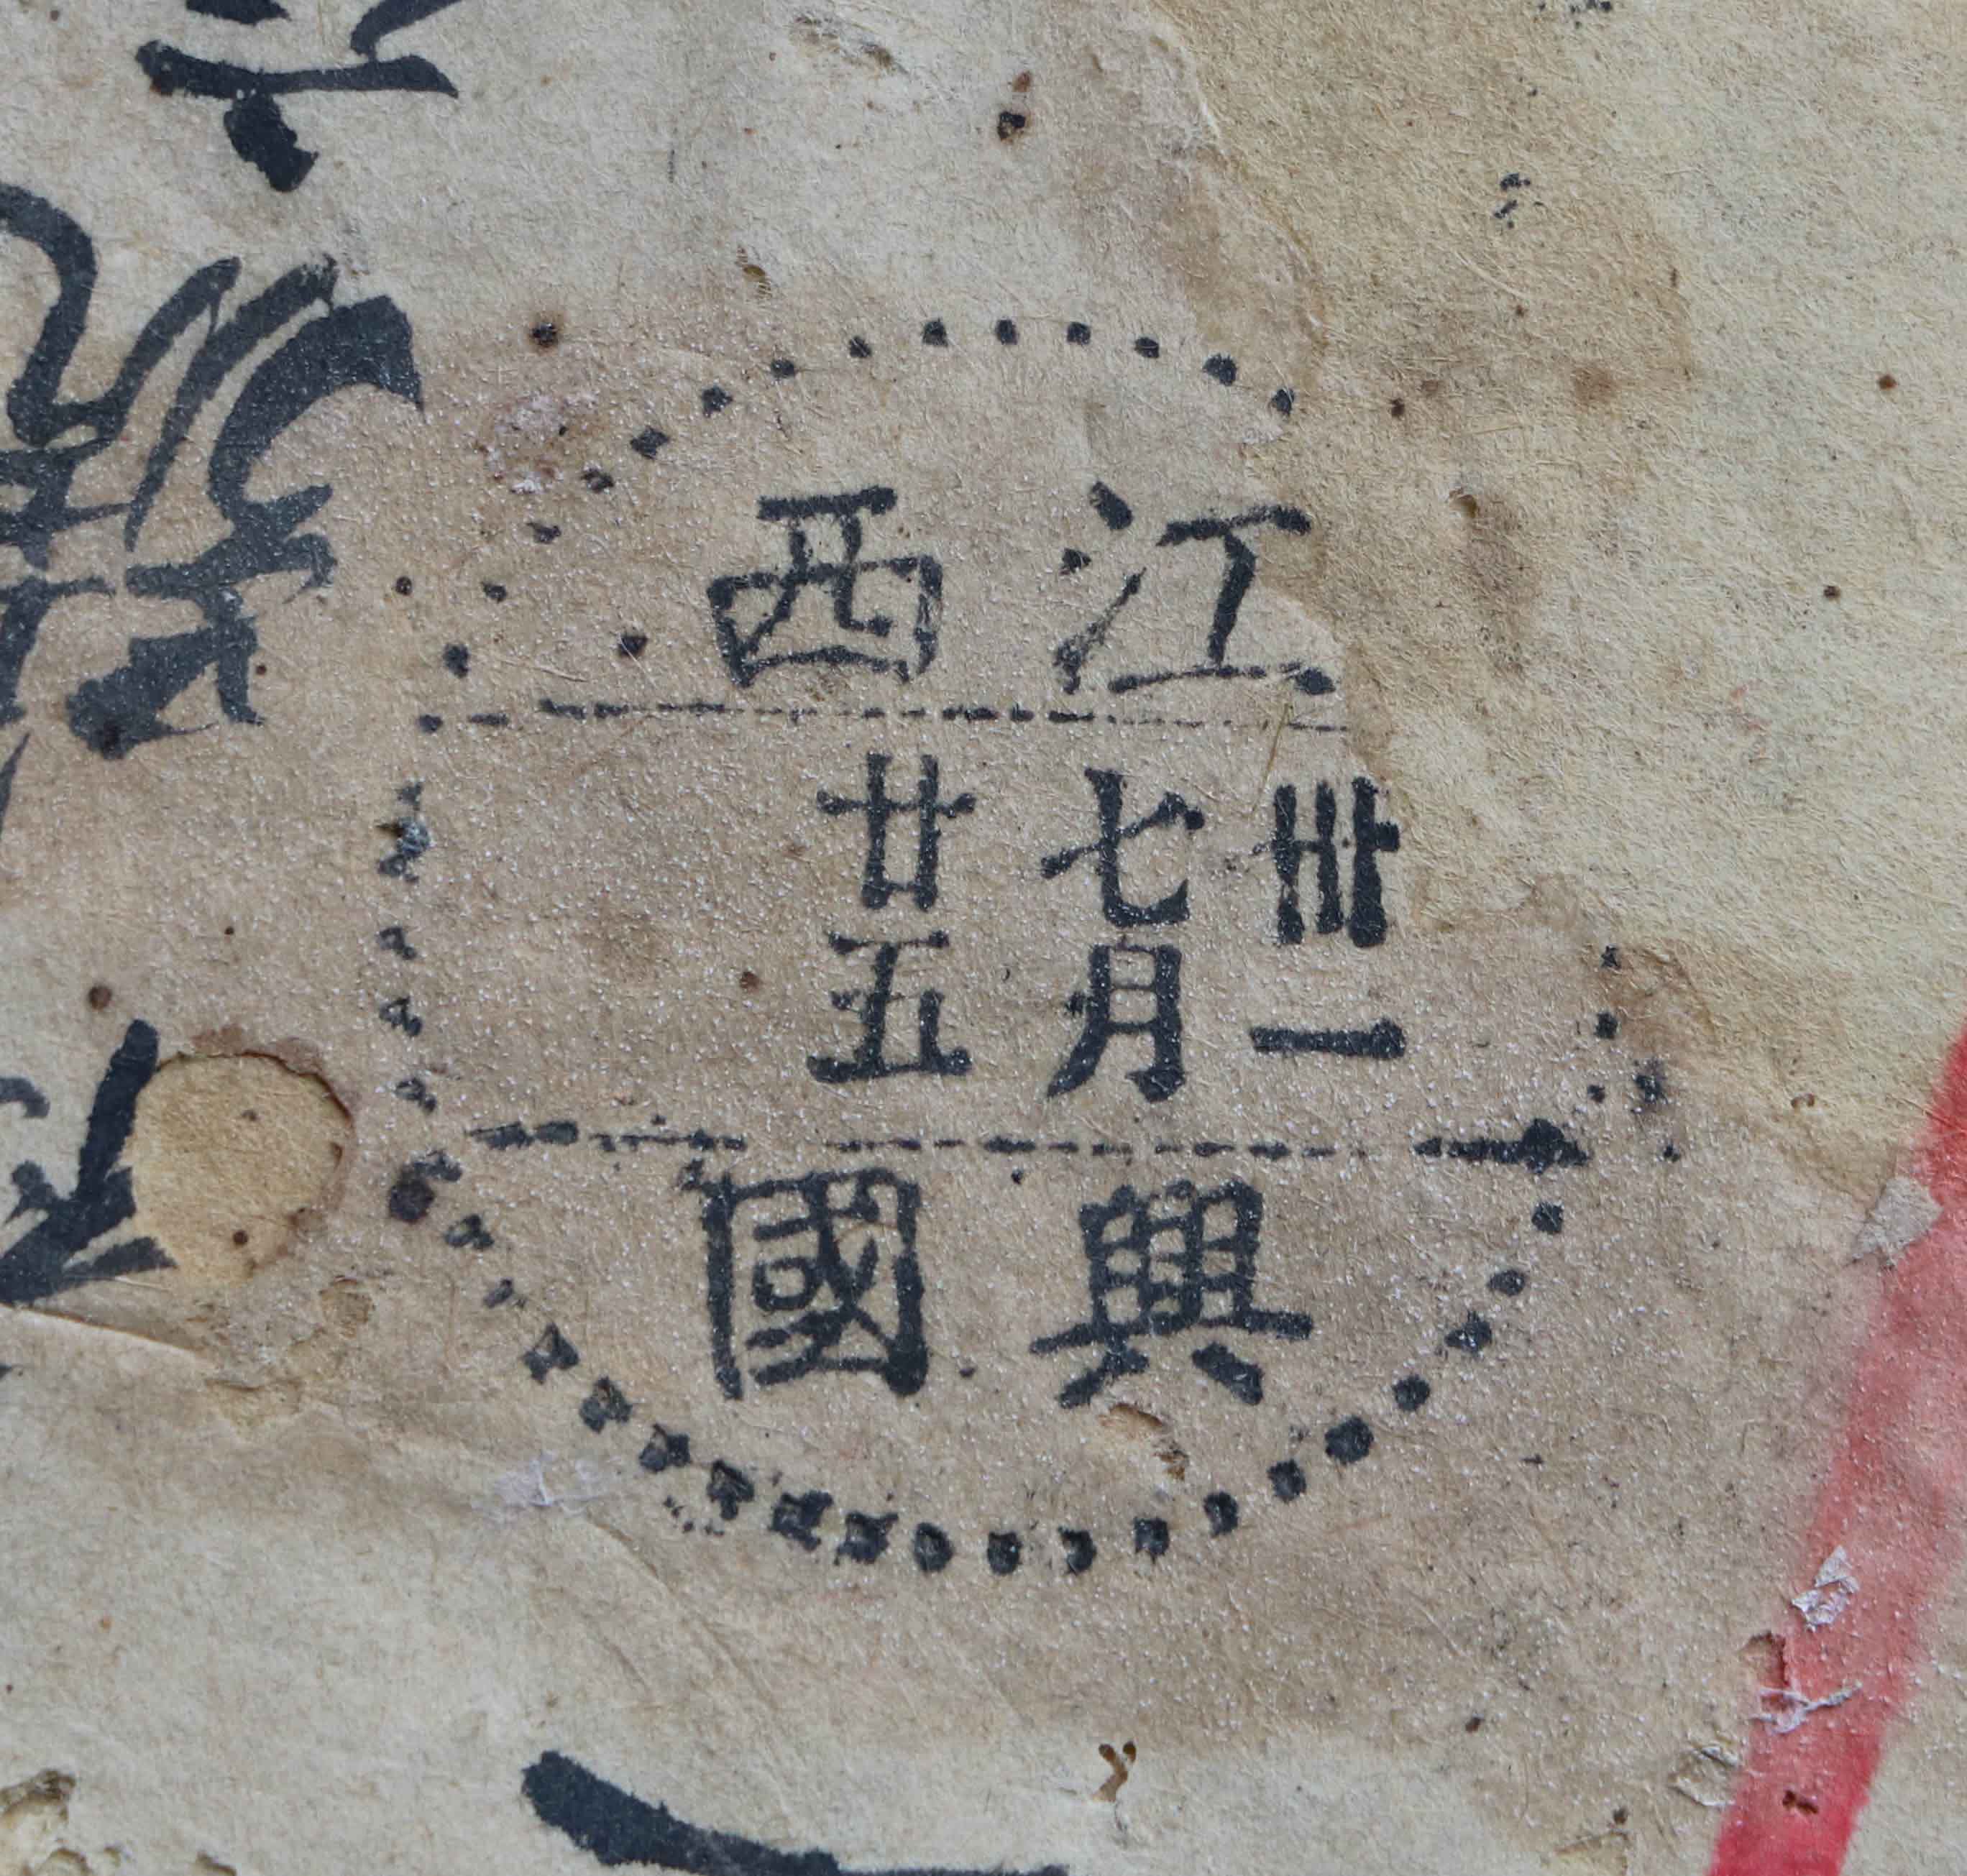 江西
卅一
七月
廿五
興國